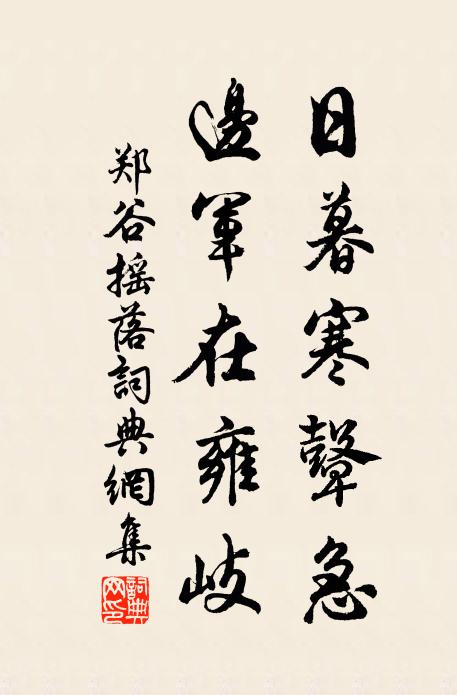 日暮寒鼙急
邊軍在雍岐
郑谷摇落詞典網集
詞典网印